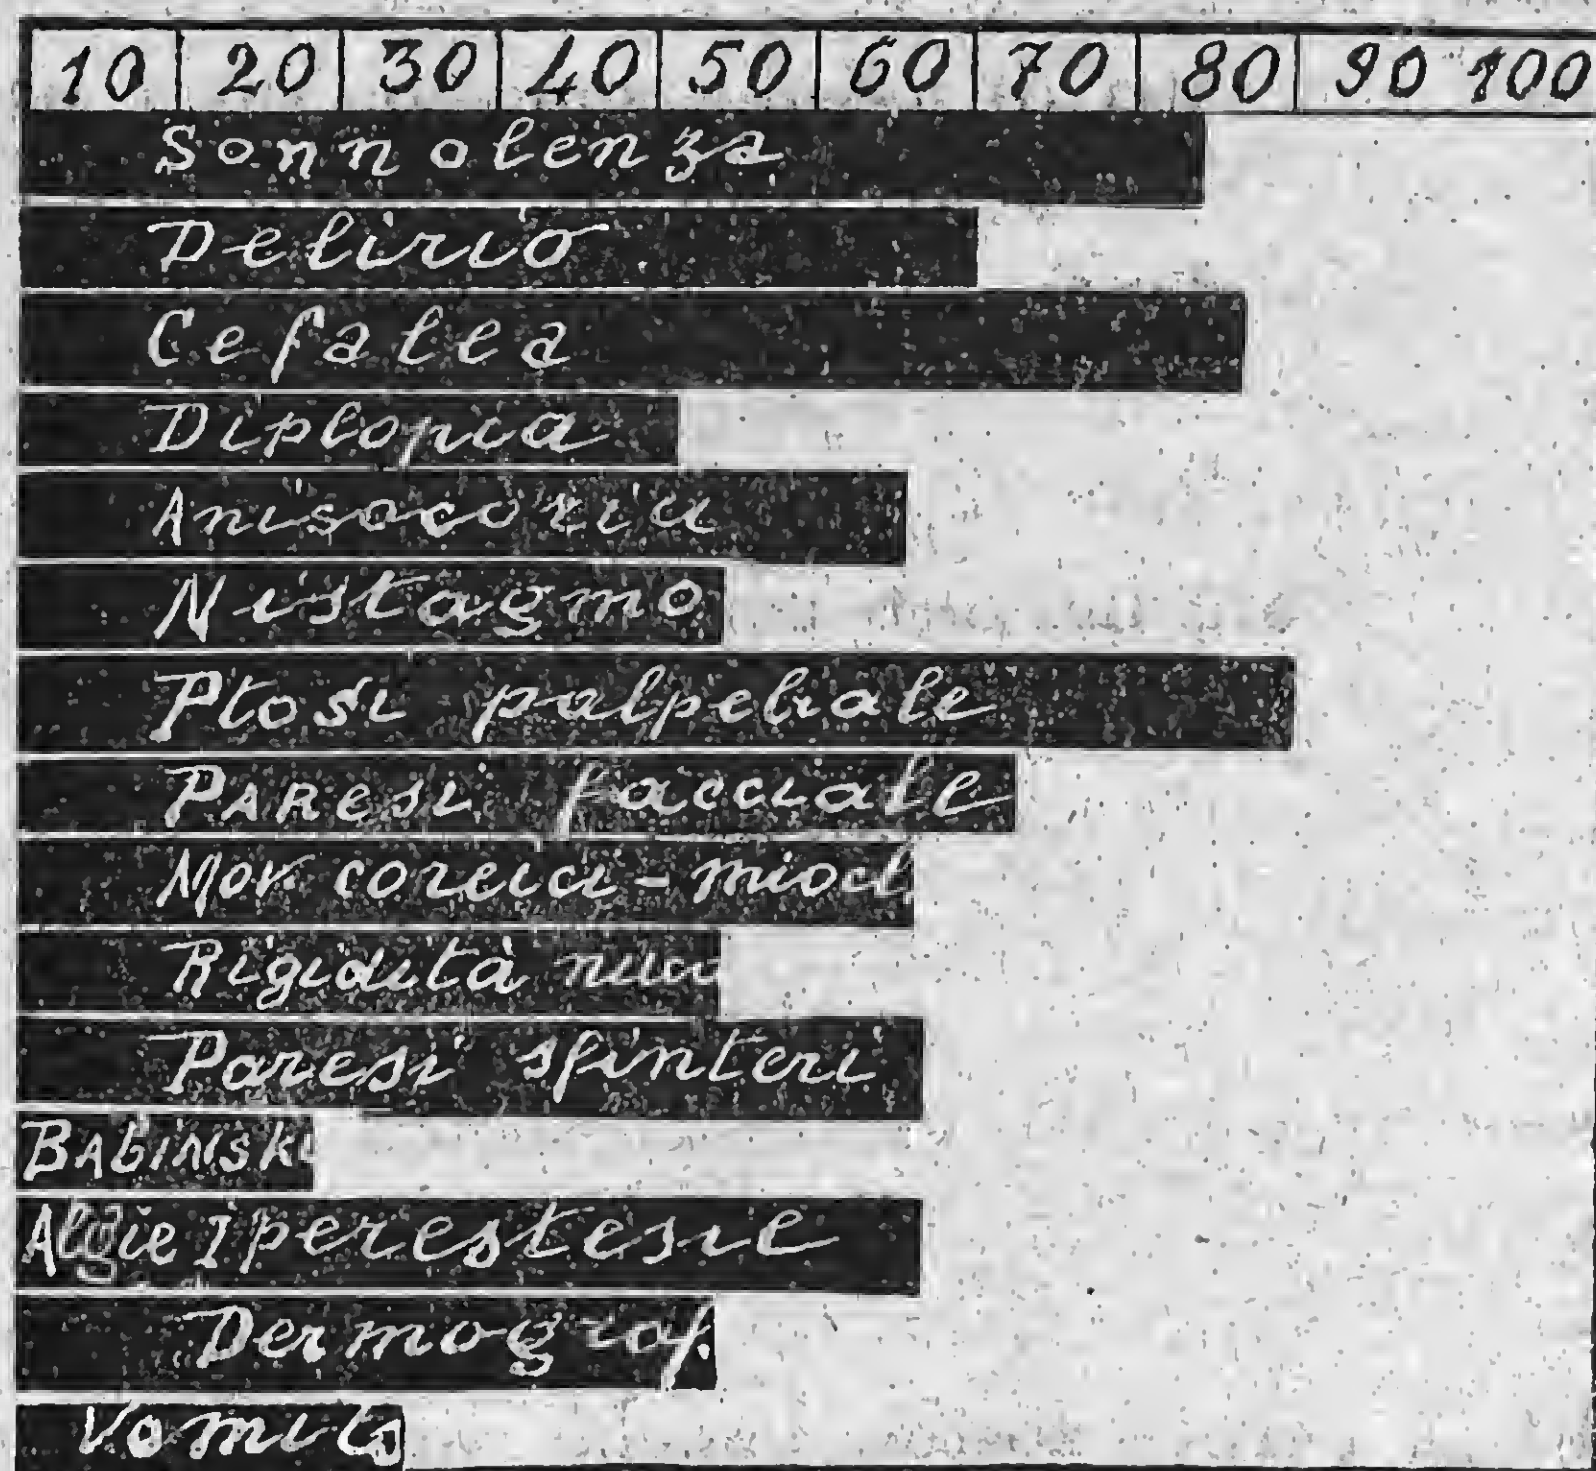 10 20 30 40 50 60 70 80 90 100
Sonnolenza
Delirio
Cefalea
Diplopia
Anisocoria
Nistagmo
Ptosi palpebrale
Paresi facciale
Mov. coreici - miocl.
Rigidità nuca
Paresi sfinteri
Babinski
Algie Iperestesie
Dermograf.
Vomito